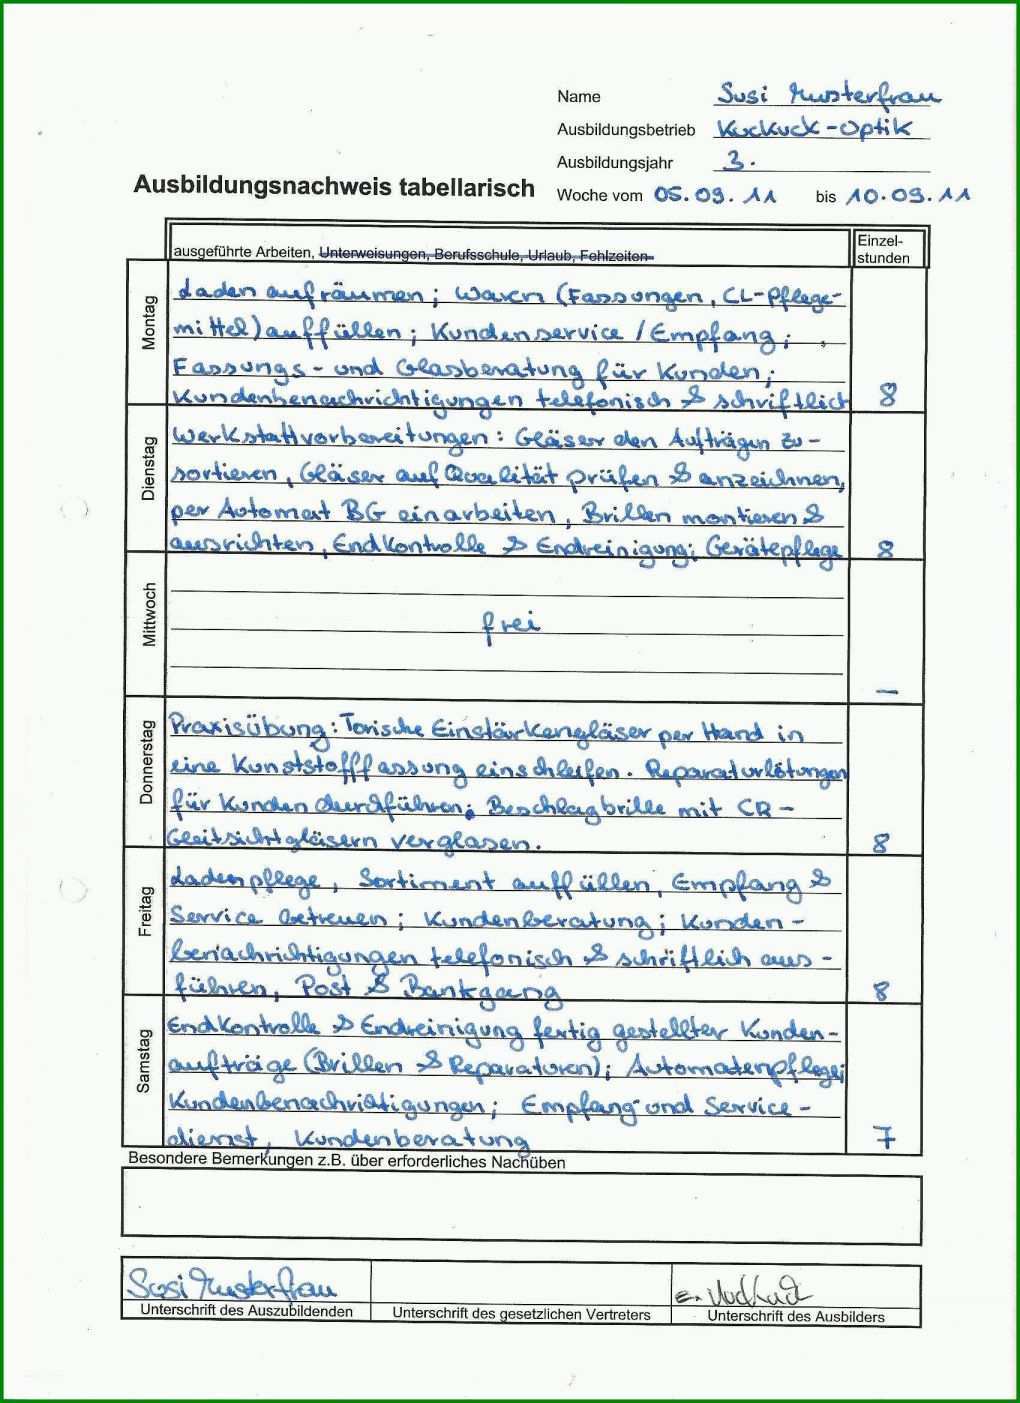 Name Susi Musterfrau
Ausbildungsbetrieb Kuckuck-Optik
Ausbildungsjahr 3.
Ausbildungsnachweis tabellarisch Woche vom 05.09.11 bis 10.09.11
ausgeführte Arbeiten, Unterweisungen, Berufsschule, Urlaub, Fehlzeiten
Einzel-
stunden
Montag
Laden aufräumen; Waren (Fassungen, CL-Pflege-
mittel) auffüllen; Kundenservice / Empfang;
Fassungs- und Glasberatung für Kunden;
Kundenbenachrichtigungen telefonisch & schriftlich
8
Dienstag
Werkstattvorbereitungen: Gläser den Aufträgen zu-
sortieren, Gläser auf Qualität prüfen & anzeichnen,
per Automat BG einarbeiten, Brillen montieren &
ausrichten, Endkontrolle & Endreinigung; Gerätepflege
8
Mittwoch
frei
–
Donnerstag
Praxisübung: Torische Einstärkengläser per Hand in
eine Kunststofffassung einschleifen. Reparaturlötungen
für Kunden durchführen; Beschlagbrille mit CR-
Gleitsichtgläsern verglasen.
8
Freitag
Ladenpflege, Sortiment auffüllen, Empfang &
Service betreuen; Kundenberatung; Kunden-
benachrichtigungen telefonisch & schriftlich aus-
führen, Post & Bankgang
8
Samstag
Endkontrolle & Endreinigung fertig gestellter Kunden-
aufträge (Brillen & Reparaturen); Automatenpflege;
Kundenbenachrichtigungen; Empfang und Service-
dienst, Kundenberatung
7
Besondere Bemerkungen z.B. über erforderliches Nachüben
Susi Musterfrau
Unterschrift des Auszubildenden
Unterschrift des gesetzlichen Vertreters
Unterschrift des Ausbilders